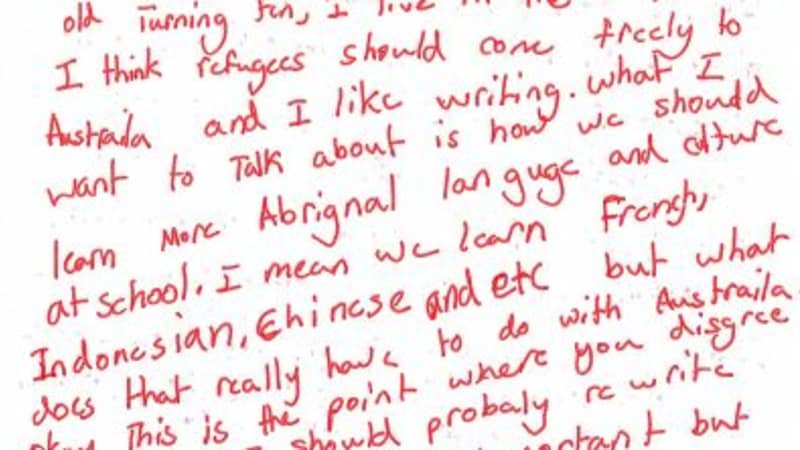 old Turning ten, I live in
I think refugees should come freely to
Austraila and I like writing. what I
want to Talk about is how we should
learn more Abrignal languge and culture
at school. I mean we learn French,
Indonesian, Chinese and etc but what
does that really have to do with Austraila
okay This is the point where you disgree
I should probaly re write
but